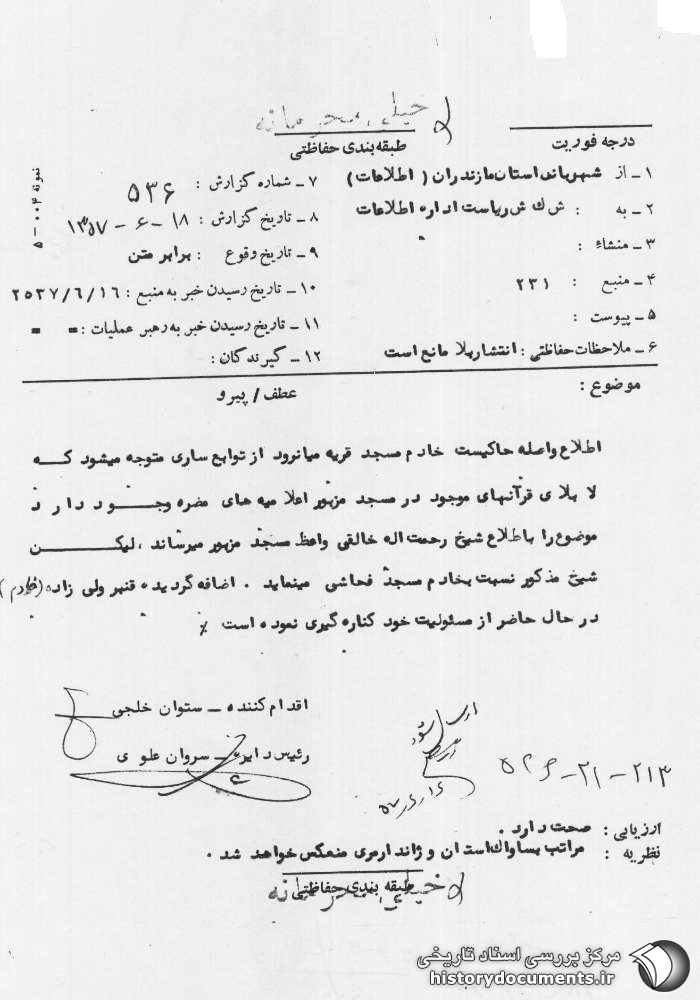 خیلی محرمانه
درجه فوریت
طبقه بندی حفاظتی
نمونه ۰۰۴ - ۵
۱ـ از شهربانی استان مازندران ( اطلاعات )
۲ـ به : ش ك ش ریاست اداره اطلاعات
۳ـ منشاء :
۴ـ منبع : ۲۳۱
۵ـ پیوست :
۶ـ ملاحظات حفاظتی : انتشار بلا مانع است
۷ـ شماره گزارش : ۵۳۶
۸ـ تاریخ گزارش : ۱۸-۶-۱۳۵۷
۹ـ تاریخ وقوع : برابر متن
۱۰ـ تاریخ رسیدن خبر به منبع : ۲۵۳۷/۶/۱۶
۱۱ـ تاریخ رسیدن خبر به رهبر عملیات : = =
۱۲ـ گیرندگان :
موضوع :
عطف / پیرو
اطلاع واصله حاکیست خادم مسجد قریه میانرود از توابع ساری متوجه میشود که
لا بلای قرآنهای موجود در مسجد مزبور اعلامیه های مضره وجود دارد
موضوع را باطلاع شیخ رحمت اله خالقی واعظ مسجد مزبور میرساند ، لیکن
شیخ مذکور نسبت بخادم مسجد فحاشی مینماید . اضافه گردیده قنبر ولی زاده (خادم)
در حال حاضر از مسئولیت خود کناره گیری نموده است ٪
اقدام کننده ـ ستوان خلجی
رئیس دایره ـ سروان علوی
ارسال شود
۲۱۳ - ۲۱ -
ارزیابی : صحت دارد .
نظریه : مراتب بساواك استان و ژاندارمری منعکس خواهد شد .
طبقه بندی حفاظتی
خیلی محرمانه
مرکز بررسی اسناد تاریخی
historydocuments.ir